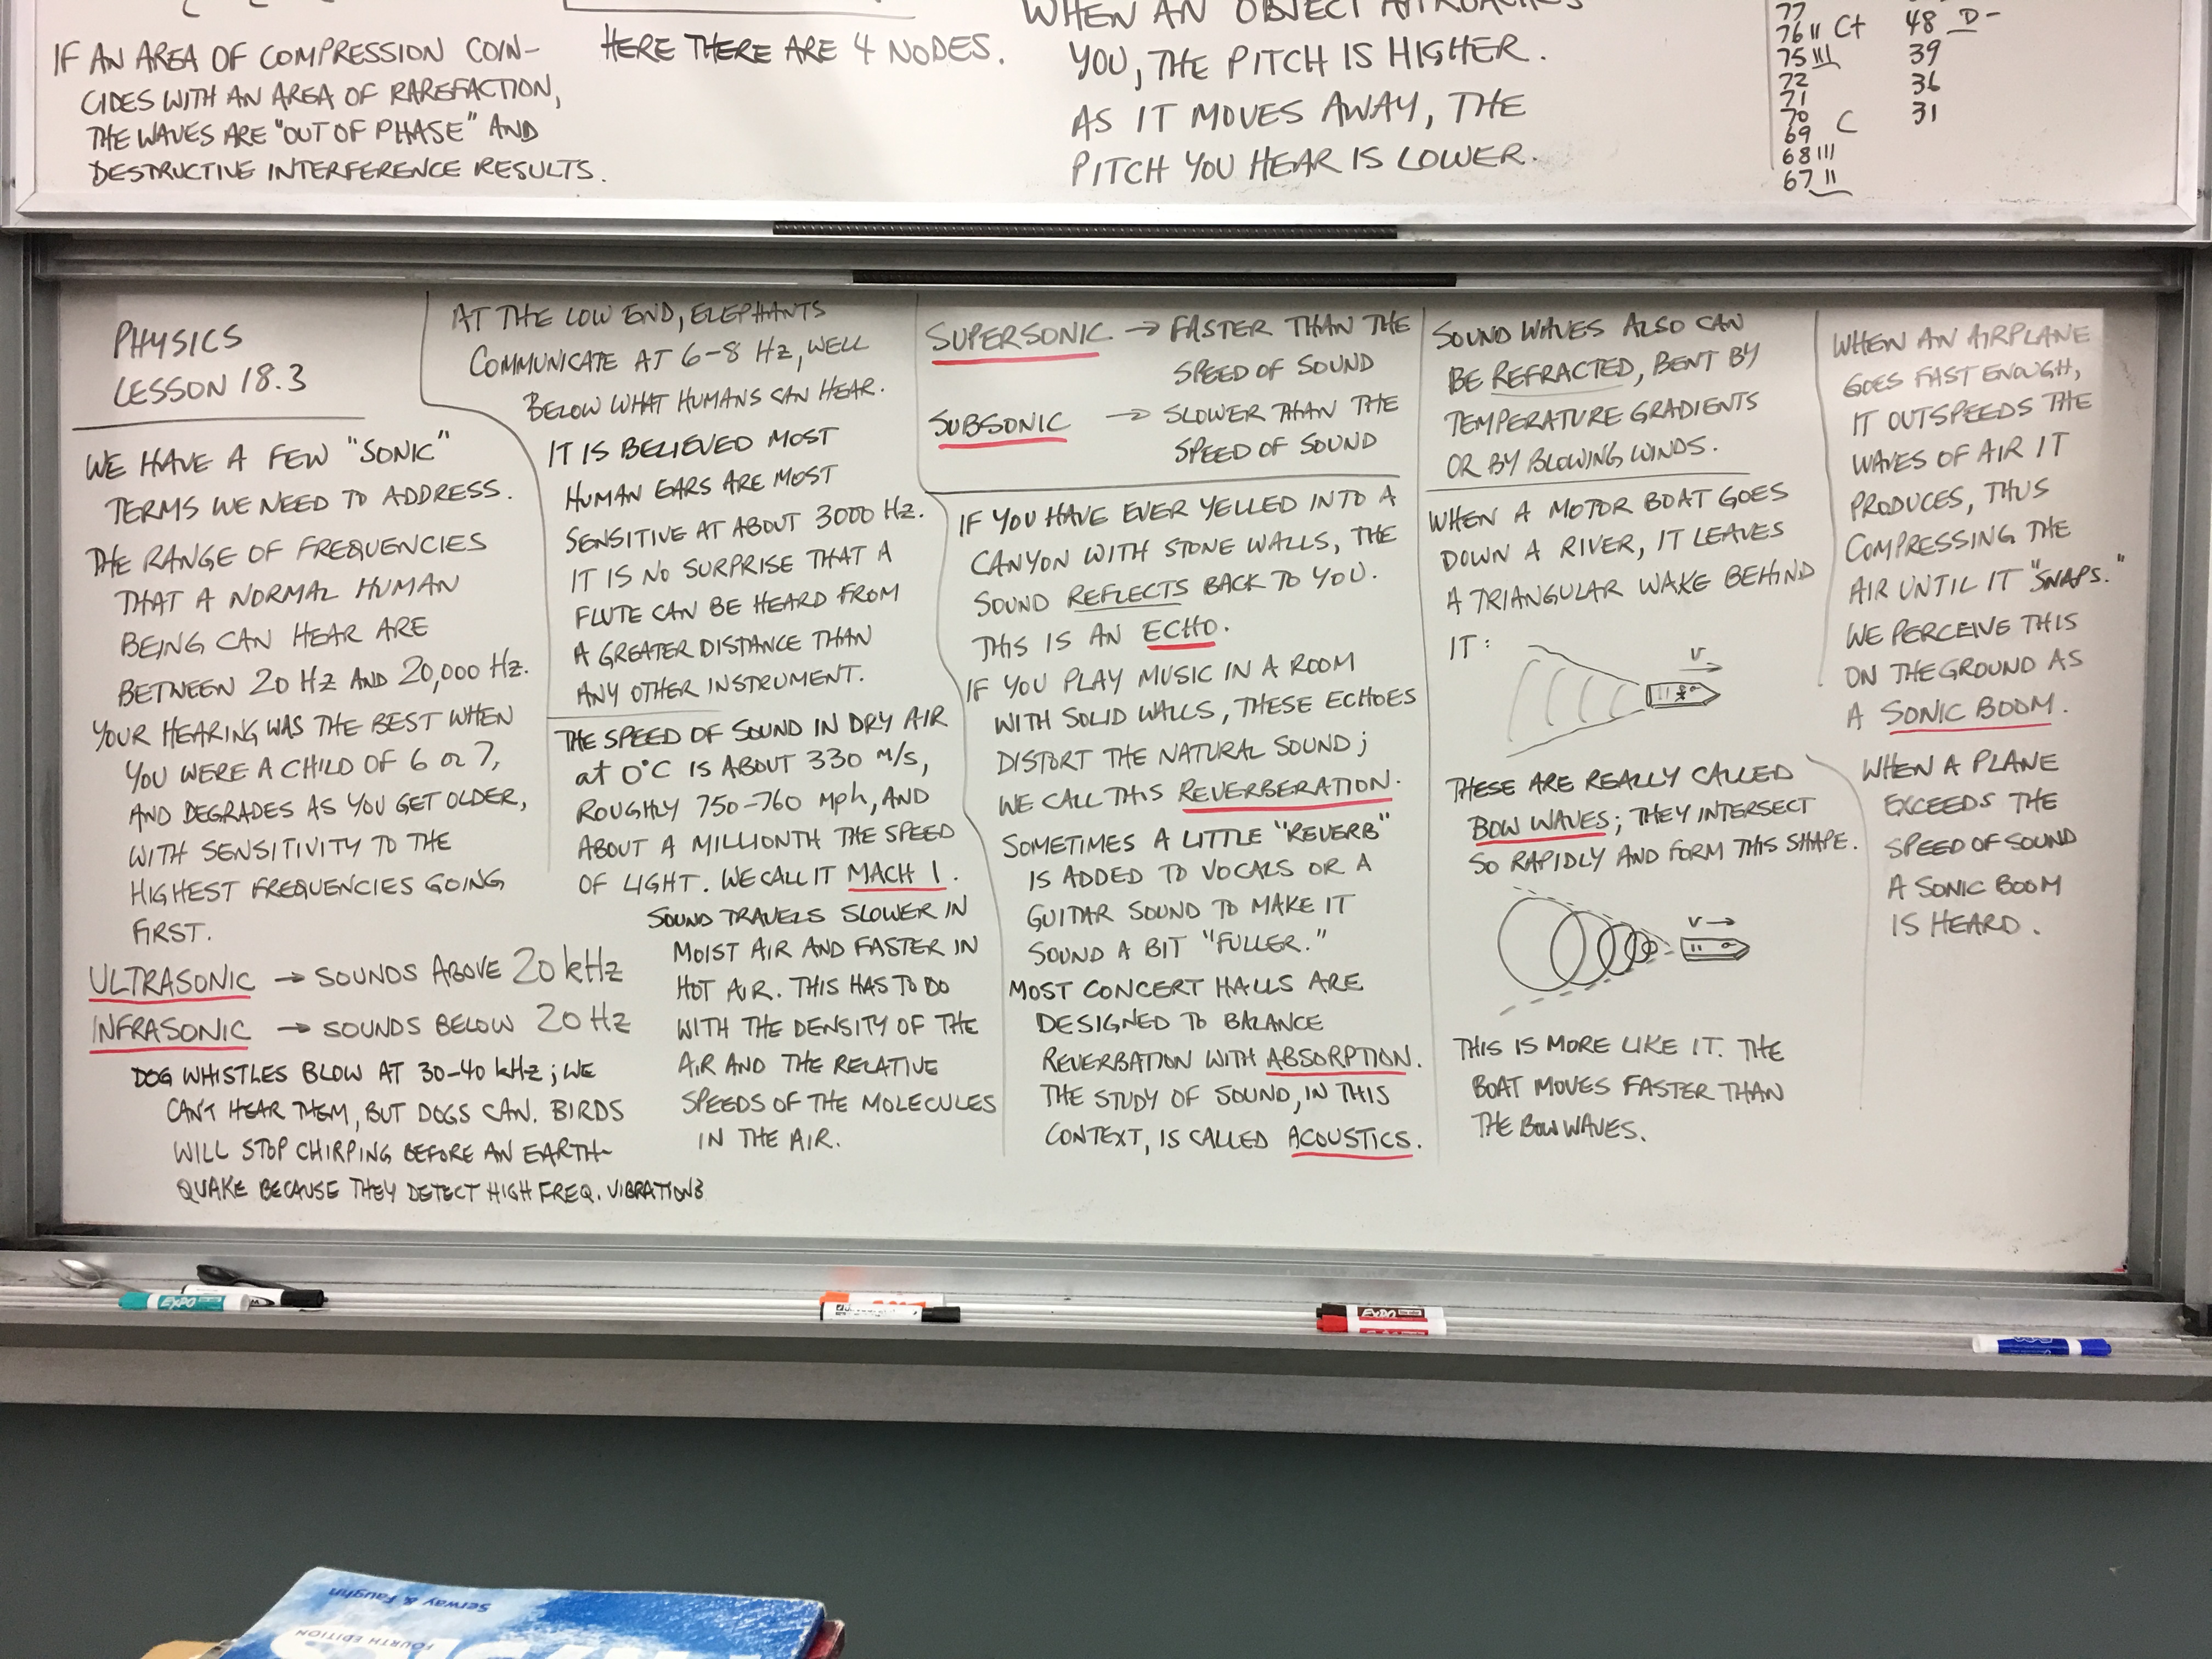 IF AN AREA OF COMPRESSION COIN-
CIDES WITH AN AREA OF RAREFACTION,
THE WAVES ARE "OUT OF PHASE" AND
DESTRUCTIVE INTERFERENCE RESULTS.
HERE THERE ARE 4 NODES.
WHEN AN OBJECT APPROACHES
YOU, THE PITCH IS HIGHER.
AS IT MOVES AWAY, THE
PITCH YOU HEAR IS LOWER.
77
76 II C+
75 III
72
71
70
69 C
68 III
67 II
48 D-
39
36
31
PHYSICS
LESSON 18.3
WE HAVE A FEW "SONIC"
TERMS WE NEED TO ADDRESS.
THE RANGE OF FREQUENCIES
THAT A NORMAL HUMAN
BEING CAN HEAR ARE
BETWEEN 20 HZ AND 20,000 HZ.
YOUR HEARING WAS THE BEST WHEN
YOU WERE A CHILD OF 6 OR 7,
AND DEGRADES AS YOU GET OLDER,
WITH SENSITIVITY TO THE
HIGHEST FREQUENCIES GOING
FIRST.
ULTRASONIC → SOUNDS ABOVE 20 kHz
INFRASONIC → SOUNDS BELOW 20 HZ
DOG WHISTLES BLOW AT 30-40 kHz; WE
CAN'T HEAR THEM, BUT DOGS CAN. BIRDS
WILL STOP CHIRPING BEFORE AN EARTH-
QUAKE BECAUSE THEY DETECT HIGH FREQ. VIBRATIONS
AT THE LOW END, ELEPHANTS
COMMUNICATE AT 6-8 HZ, WELL
BELOW WHAT HUMANS CAN HEAR.
IT IS BELIEVED MOST
HUMAN EARS ARE MOST
SENSITIVE AT ABOUT 3000 HZ.
IT IS NO SURPRISE THAT A
FLUTE CAN BE HEARD FROM
A GREATER DISTANCE THAN
ANY OTHER INSTRUMENT.
THE SPEED OF SOUND IN DRY AIR
at 0°C IS ABOUT 330 m/s,
ROUGHLY 750-760 mph, AND
ABOUT A MILLIONTH THE SPEED
OF LIGHT. WE CALL IT MACH 1.
SOUND TRAVELS SLOWER IN
MOIST AIR AND FASTER IN
HOT AIR. THIS HAS TO DO
WITH THE DENSITY OF THE
AIR AND THE RELATIVE
SPEEDS OF THE MOLECULES
IN THE AIR.
SUPERSONIC → FASTER THAN THE
SPEED OF SOUND
SUBSONIC → SLOWER THAN THE
SPEED OF SOUND
IF YOU HAVE EVER YELLED INTO A
CANYON WITH STONE WALLS, THE
SOUND REFLECTS BACK TO YOU.
THIS IS AN ECHO.
IF YOU PLAY MUSIC IN A ROOM
WITH SOLID WALLS, THESE ECHOES
DISTORT THE NATURAL SOUND;
WE CALL THIS REVERBERATION.
SOMETIMES A LITTLE "REVERB"
IS ADDED TO VOCALS OR A
GUITAR SOUND TO MAKE IT
SOUND A BIT "FULLER."
MOST CONCERT HALLS ARE
DESIGNED TO BALANCE
REVERBATION WITH ABSORPTION.
THE STUDY OF SOUND, IN THIS
CONTEXT, IS CALLED ACOUSTICS.
SOUND WAVES ALSO CAN
BE REFRACTED, BENT BY
TEMPERATURE GRADIENTS
OR BY BLOWING WINDS.
WHEN A MOTOR BOAT GOES
DOWN A RIVER, IT LEAVES
A TRIANGULAR WAKE BEHIND
IT:
V →
THESE ARE REALLY CALLED
BOW WAVES; THEY INTERSECT
SO RAPIDLY AND FORM THIS SHAPE.
V →
THIS IS MORE LIKE IT. THE
BOAT MOVES FASTER THAN
THE BOW WAVES.
WHEN AN AIRPLANE
GOES FAST ENOUGH,
IT OUTSPEEDS THE
WAVES OF AIR IT
PRODUCES, THUS
COMPRESSING THE
AIR UNTIL IT "SNAPS."
WE PERCEIVE THIS
ON THE GROUND AS
A SONIC BOOM.
WHEN A PLANE
EXCEEDS THE
SPEED OF SOUND
A SONIC BOOM
IS HEARD.
EXPO
EXPO
Serway & Faughn
FOURTH EDITION